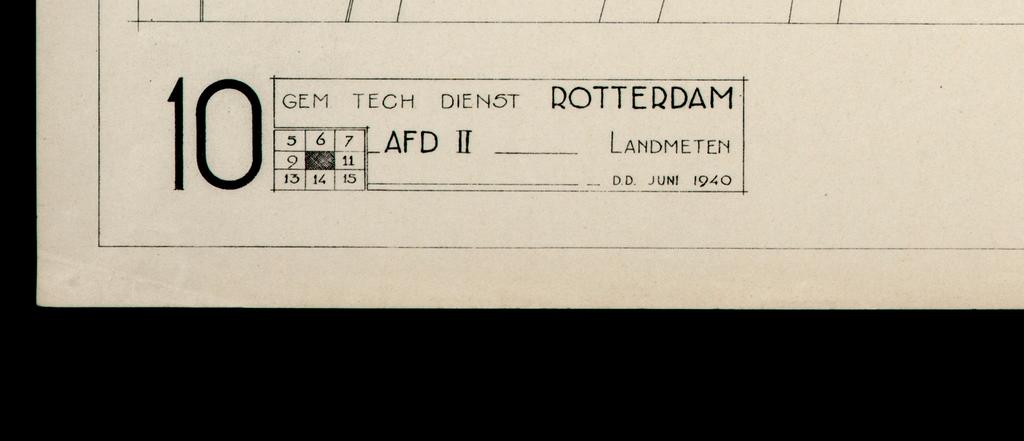 10
GEM TECH DIENST ROTTERDAM
5 6 7
9 11
13 14 15
AFD II LANDMETEN
D.D. JUNI 1940